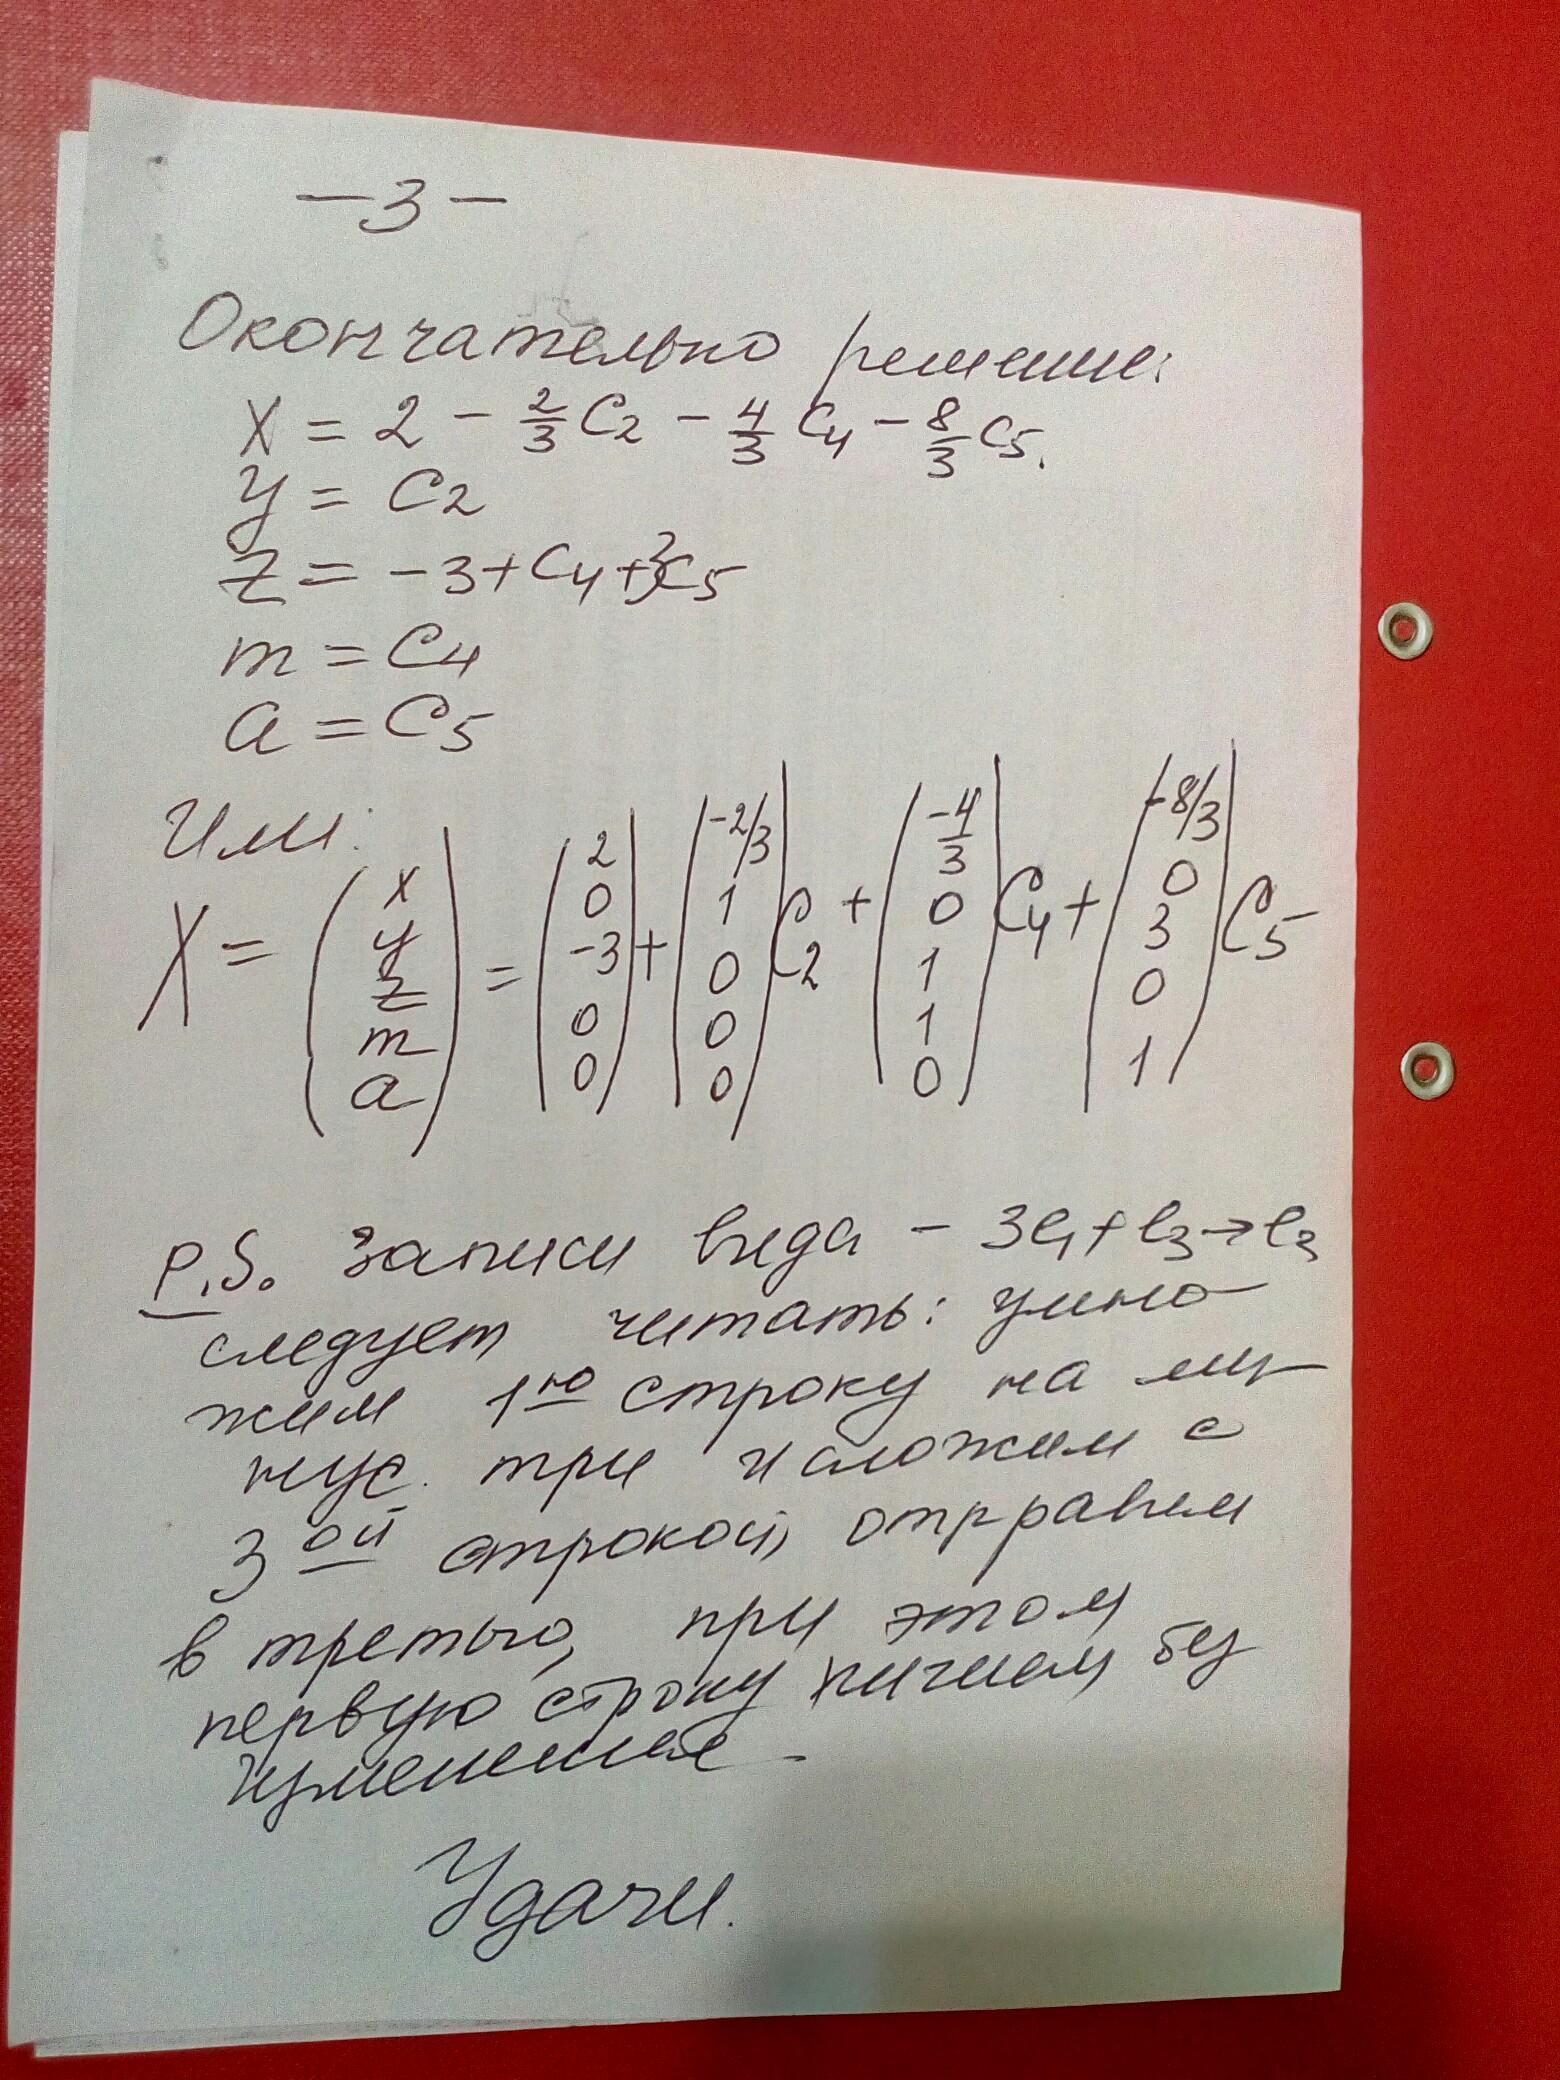 -3-
Окончательно решение:
X = 2 - 2/3 C2 - 4/3 C4 - 8/3 C5.
y = C2
z = -3 + C4 + 3C5
m = C4
a = C5
Или:
X = (x y z m a) = (2 0 -3 0 0) + (-2/3 1 0 0 0) C2 + (-4/3 0 1 1 0) C4 + (-8/3 0 3 0 1) C5
P.S. Записи вида - 3l1 + l3 → l3
следует читать: умно-
жим 1ю строку на ми-
нус три и сложим с
3ой строкой, отправим
в третью, при этом
первую строку пишем без
изменения.
Удачи.